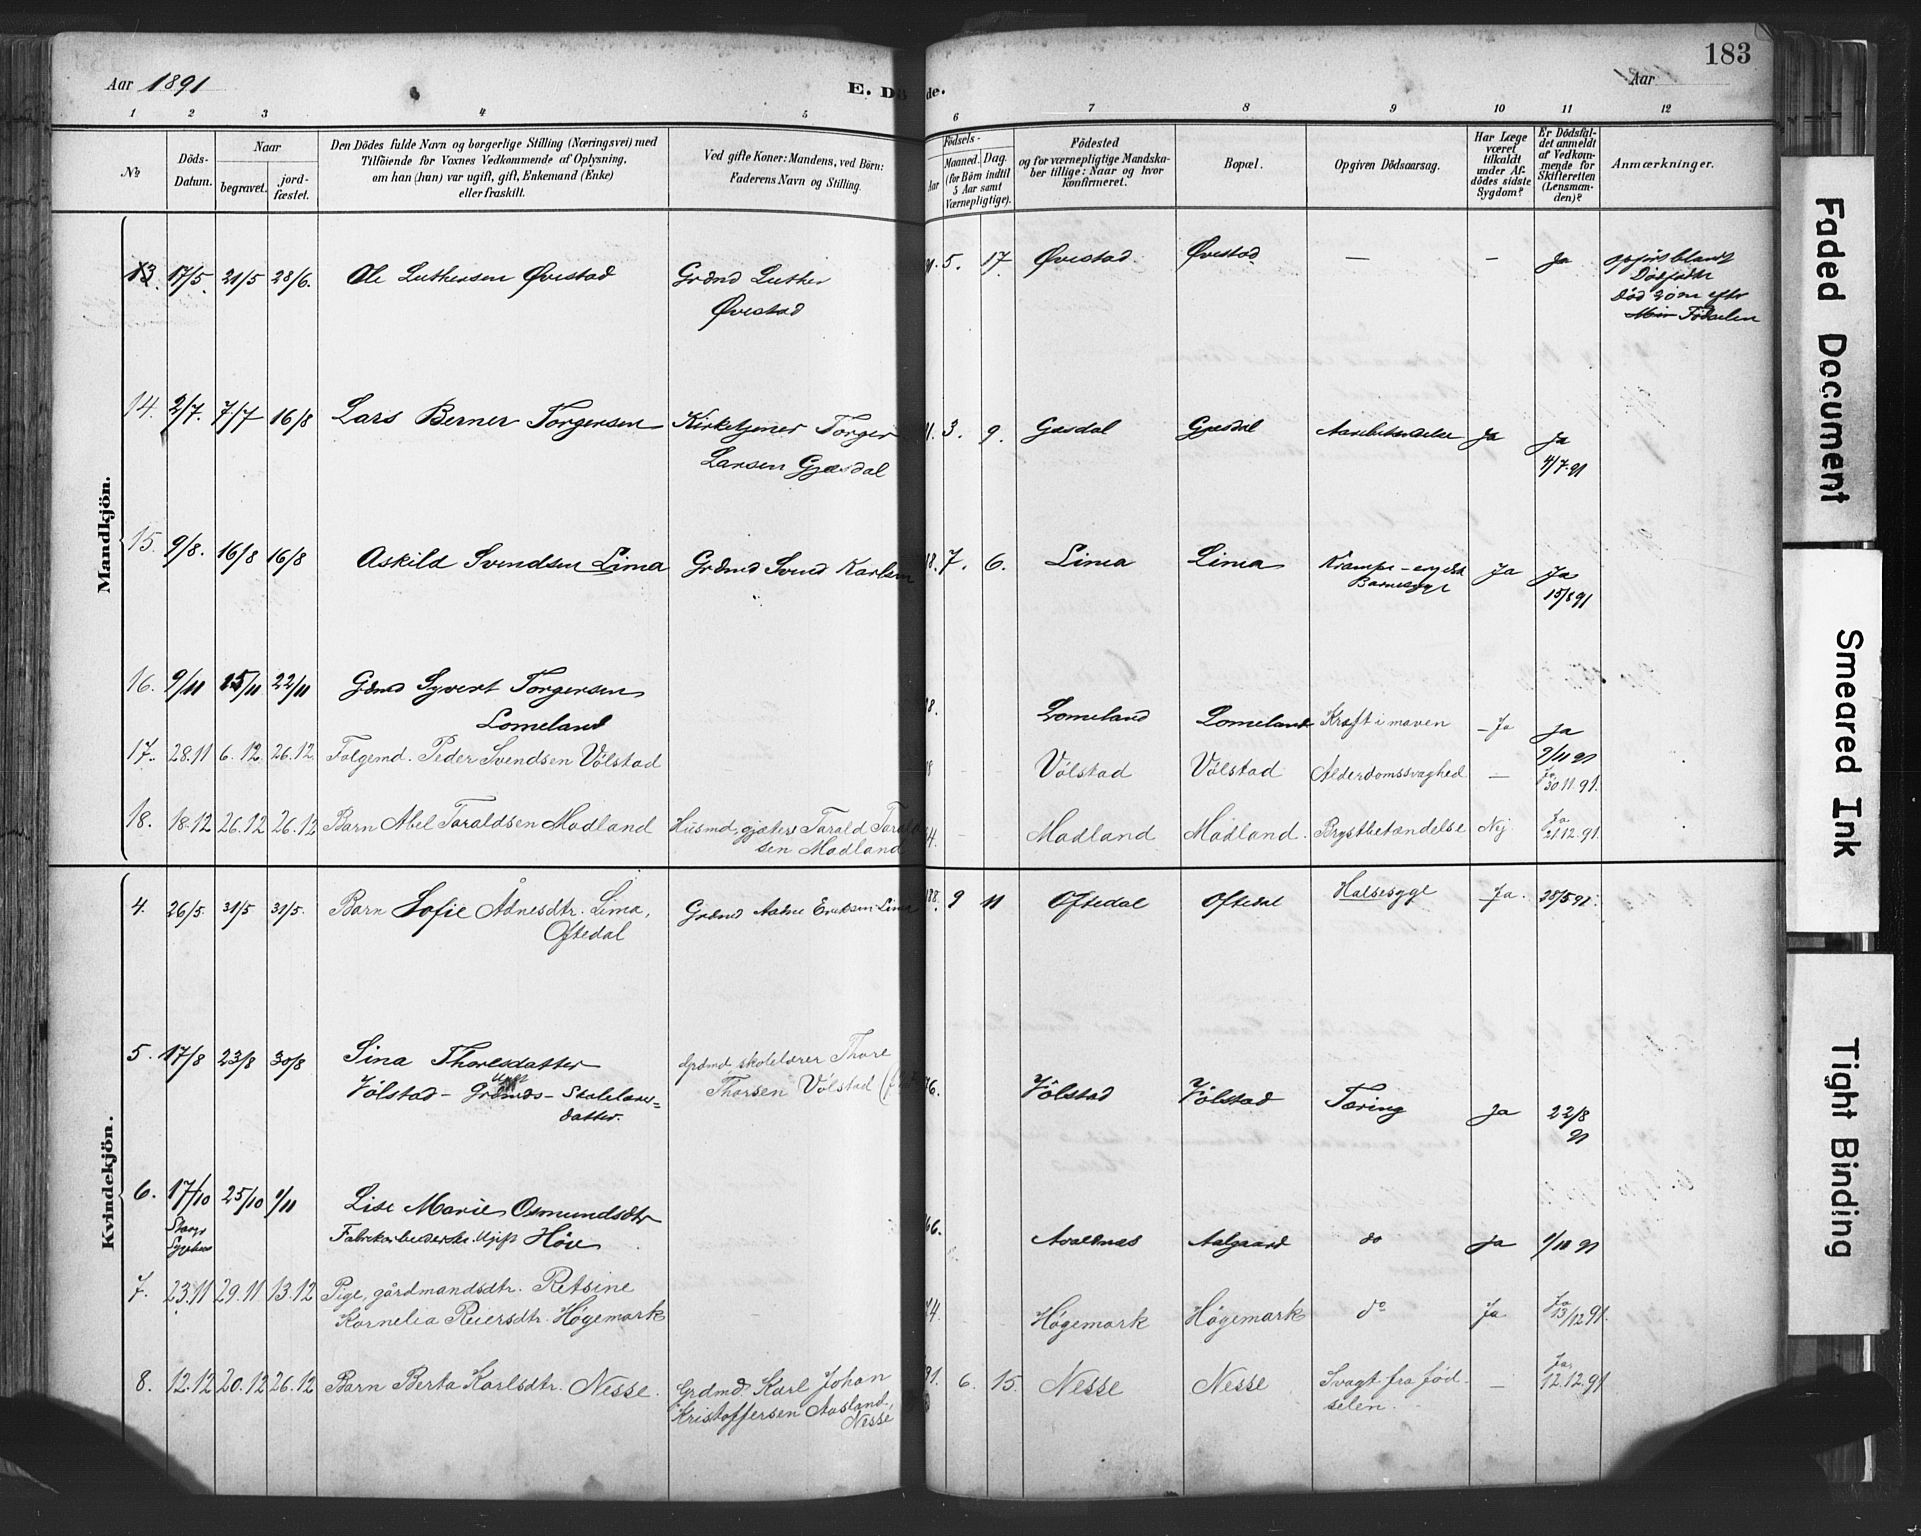 183
Aar 1891
E. Dö de.
Aar
1 2 3 4 5 6 7 8 9 10 11 12
No
Döds-Datum.
Naar
begravet.
jord-fæstet.
Den Dödes fulde Navn og borgerlige Stilling (Næringsvei) med
Tilföiende for Voxnes Vedkommende af Oplysning,
om han (hun) var ugift, gift, Enkemand (Enke)
eller fraskilt.
Ved gifte Koner: Mandens, ved Börn:
Faderens Navn og Stilling.
Födsels-
Aar
Maaned. Dag.
(for Börn indtil
5 Aar samt
Værnepligtige).
Födested
og for værnepligtige Mandska-
ber tillige: Naar og hvor
konfirmeret.
Bopæl.
Opgiven Dödsaarsag.
Har Læge
været
tilkaldt
under Af-
dödes sidste
Sygdom?
Er Dödsfal-
det anmeldt
af Vedkom-
mende for
Skifteretten
(Lensman-
den)?
Anmærkninger.
Mandkjön.
13. 17/5. 21/5 28/6. Ole Luthersen Øvestad Grdmd Luther
Øvestad
5. 17 Øvestad. Øvestad — — Ja opført blandt
Død 20 m efter
Fødselen
14. 2/7. 7/7 16/8 Lars Berner Torgersen Kirketjener Torger
Larsen Gjesdal
3. 9. Gjesdal Ja Ja
4/7.91
15. 9/8. 16/8 16/8 Askild Svendsen Lima Grdmd Svend Karlsen
7. 6. Lima Lima Krampe - engelsk
Barnesyge
Ja Ja
15/8 91
16. 9/11 15/11 22/11 Gdmd Syvert Torgersen
Lomeland
Lomeland Lomeland Kræft i maven - Ja Ja
9/11 91
17. 28.11 6.12 26.12. Folgemd. Peder Svendsen Vølstad
Vølstad Vølstad Alderdomssvaghed — Ja
30.11.91.
18. 18.12 26.12 26.12 Barn Abel Taraldsen Madland Husmd, gjæter Tarald Tarald
sen Madland
Madland Madland. Brystbetændelse Nej. Ja
21.12.91.
Kvindekjön.
4. 26/5. 31/5 31/5. Barn Sofie Ådnesdtr. Lima,
Oftedal
Grdmd Aadne Eriksen Lima
9 11 Oftedal Oftedal Halsesyge Ja. 28/5 91.
5. 17/8 23/8 30/8 Sina Thoresdatter
Vølstad - Ugift Grdmds - Skolelærer=
datter.
Grdmd, skolelærer Thore
Thorsen Vølstad
Vølstad Vølstad Tæring Ja 22/8
91
6. 17/10 25/10 1/11 Lise Marie Osmundsdtr
Fabrikarbeiderske. Ugift Høie
Avaldsnes Aalgaard do Ja
7. 23.11 29.11 13.12 Pige, gårdmandsdtr. Retsine
Kornelia Reiersdtr. Høgemark
Høgemark Høgemark do Ja Ja
13/12 91.
8. 12.12 20.12 26.12 Barn Berta Karlsdtr. Nesse. Grdmd. Karl Johan
Kristoffersen Aasland,
Nesse
6. 15. Nesse Nesse Svagt fra fød-
selen. — Ja,
12.12.91
Faded Document
Smeared Ink
Tight Binding